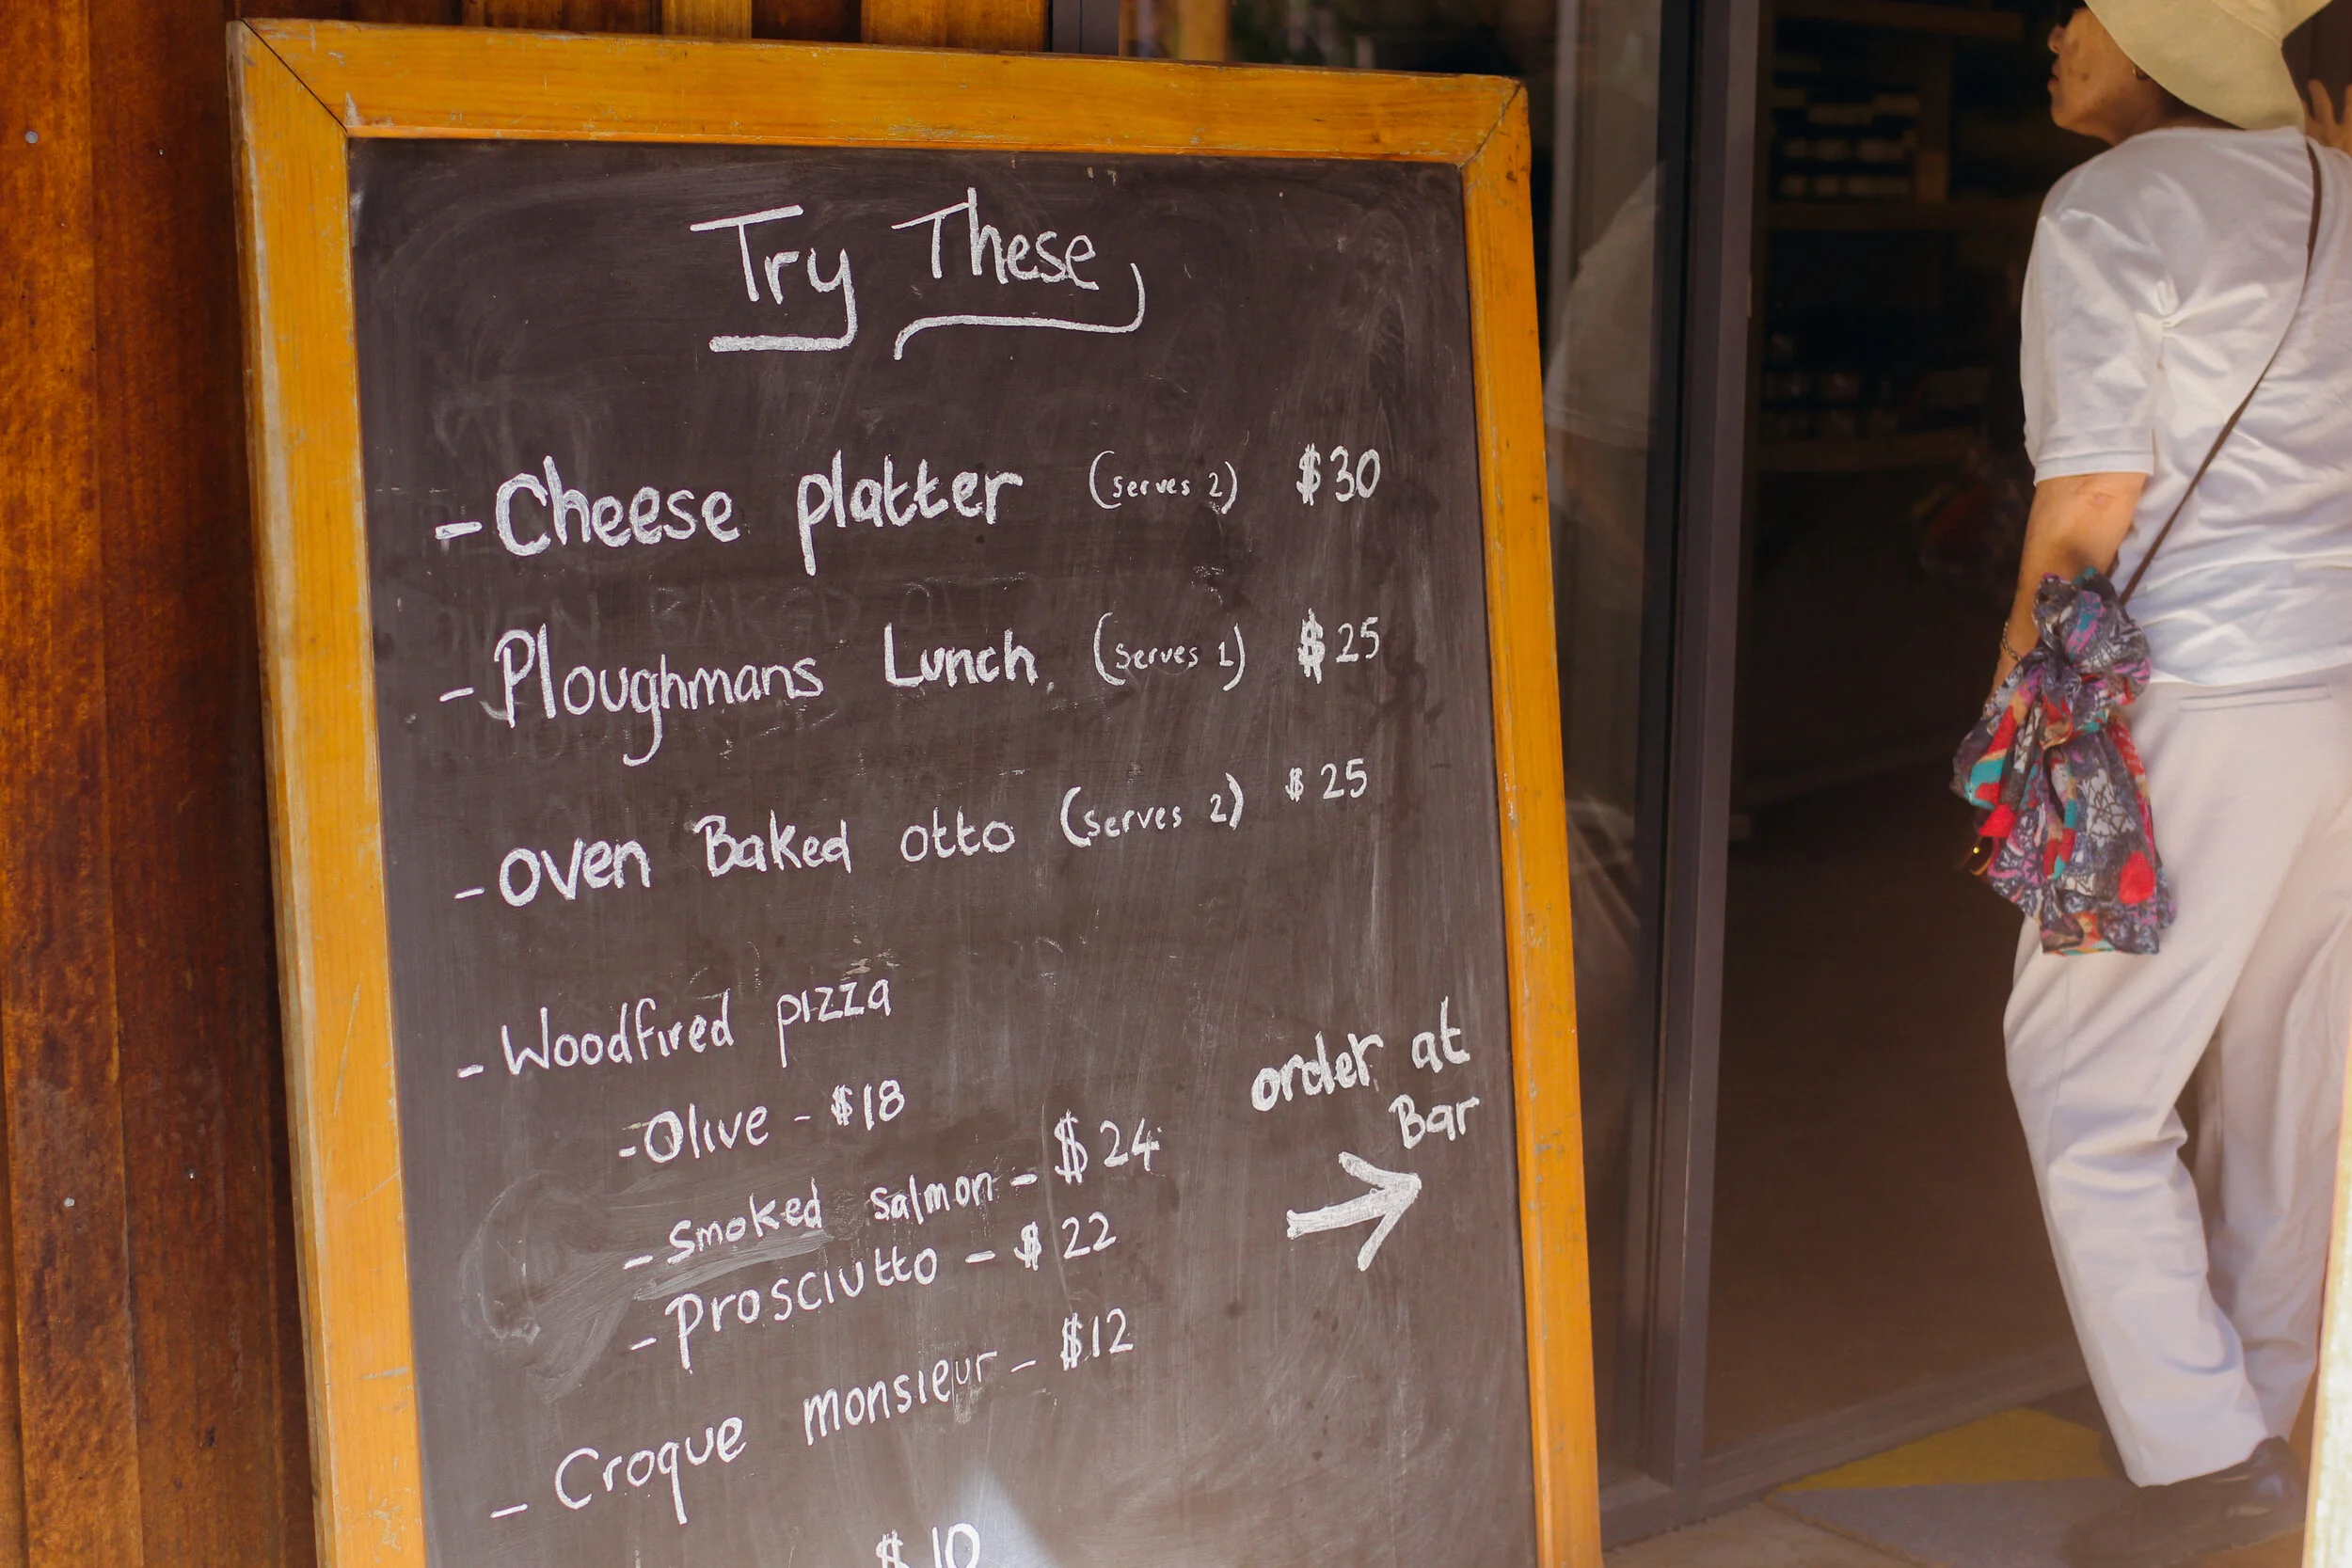 Try These
- Cheese platter (serves 2) $30
- Ploughmans Lunch (serves 1) $25
- oven Baked otto (serves 2) $25
- Woodfired pizza
- Olive - $18
- Smoked salmon - $24
- Prosciutto - $22
order at
Bar
→
- Croque monsieur - $12
$10